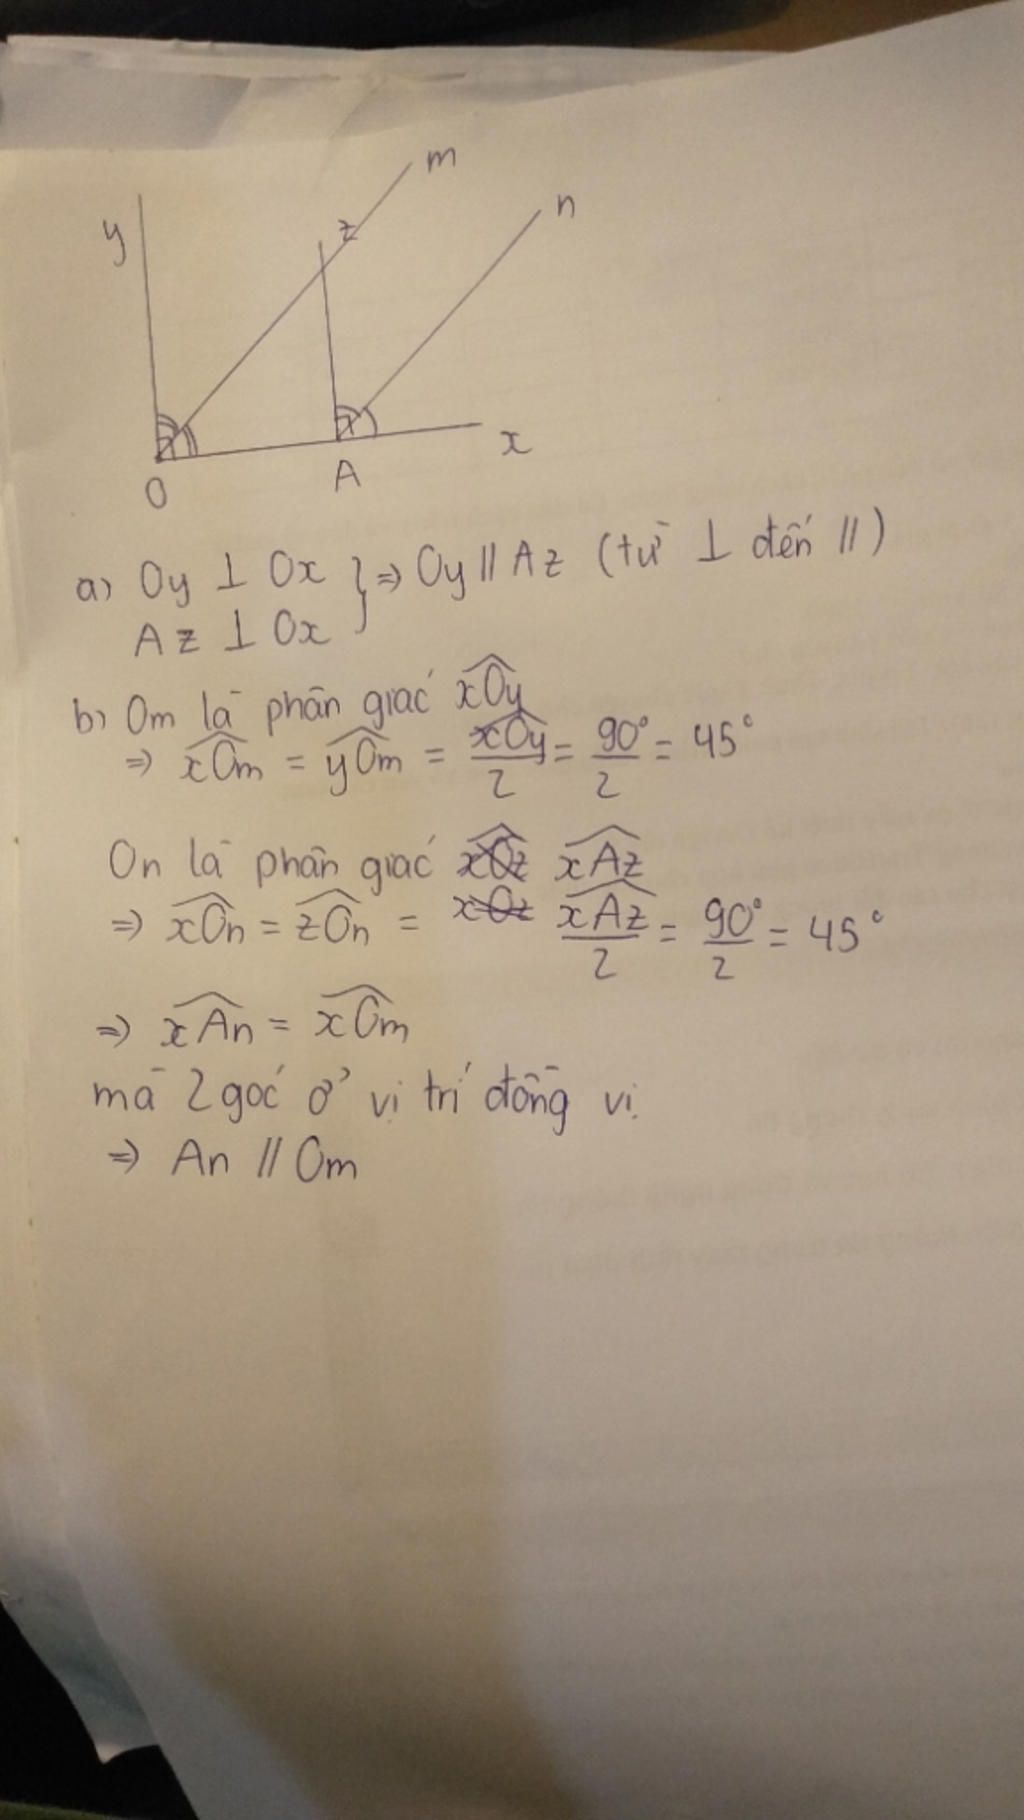 m
n
y
z
x
O
A
a) Oy ⊥ Ox } ⇒ Oy // Az (từ ⊥ đến //)
Az ⊥ Ox
b) Om là phân giác xOy
⇒ xOm = yOm = xOy/2 = 90°/2 = 45°
On là phân giác xOz xAz
⇒ xOn = zOn = xOz xAz/2 = 90°/2 = 45°
⇒ xAn = xOm
mà 2 góc ở vị trí đồng vị
⇒ An // Om